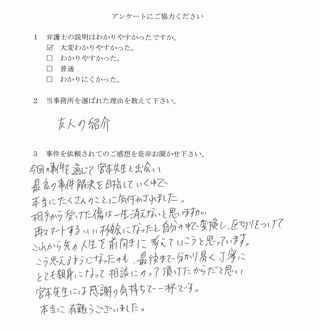 アンケートにご協力ください
1 弁護士の説明はわかりやすかったですか。
☑ 大変わかりやすかった。
□ わかりやすかった。
□ 普通
□ わかりにくかった。
2 当事務所を選ばれた理由を教えて下さい。
友人の紹介
3 事件を依頼されてのご感想を是非お聞かせ下さい。
今回の事件を通じて宮本先生と出会い
最良の事件解決を目指していく中で
本当にたくさんのことに気付かされました。
相手から受けた傷は一生消えないと思いますが
再スタートするいい切っ掛けになったと自分の中で変換し、区切りをつけて
これから先の人生を前向きに考えていこうと思っています。
こう思えるようになったのも、最後まで分かり易く丁寧に
とても親身になって相談にのって頂けたからだと思い
宮本先生には感謝の気持ちで一杯です。
本当に有難うございました。